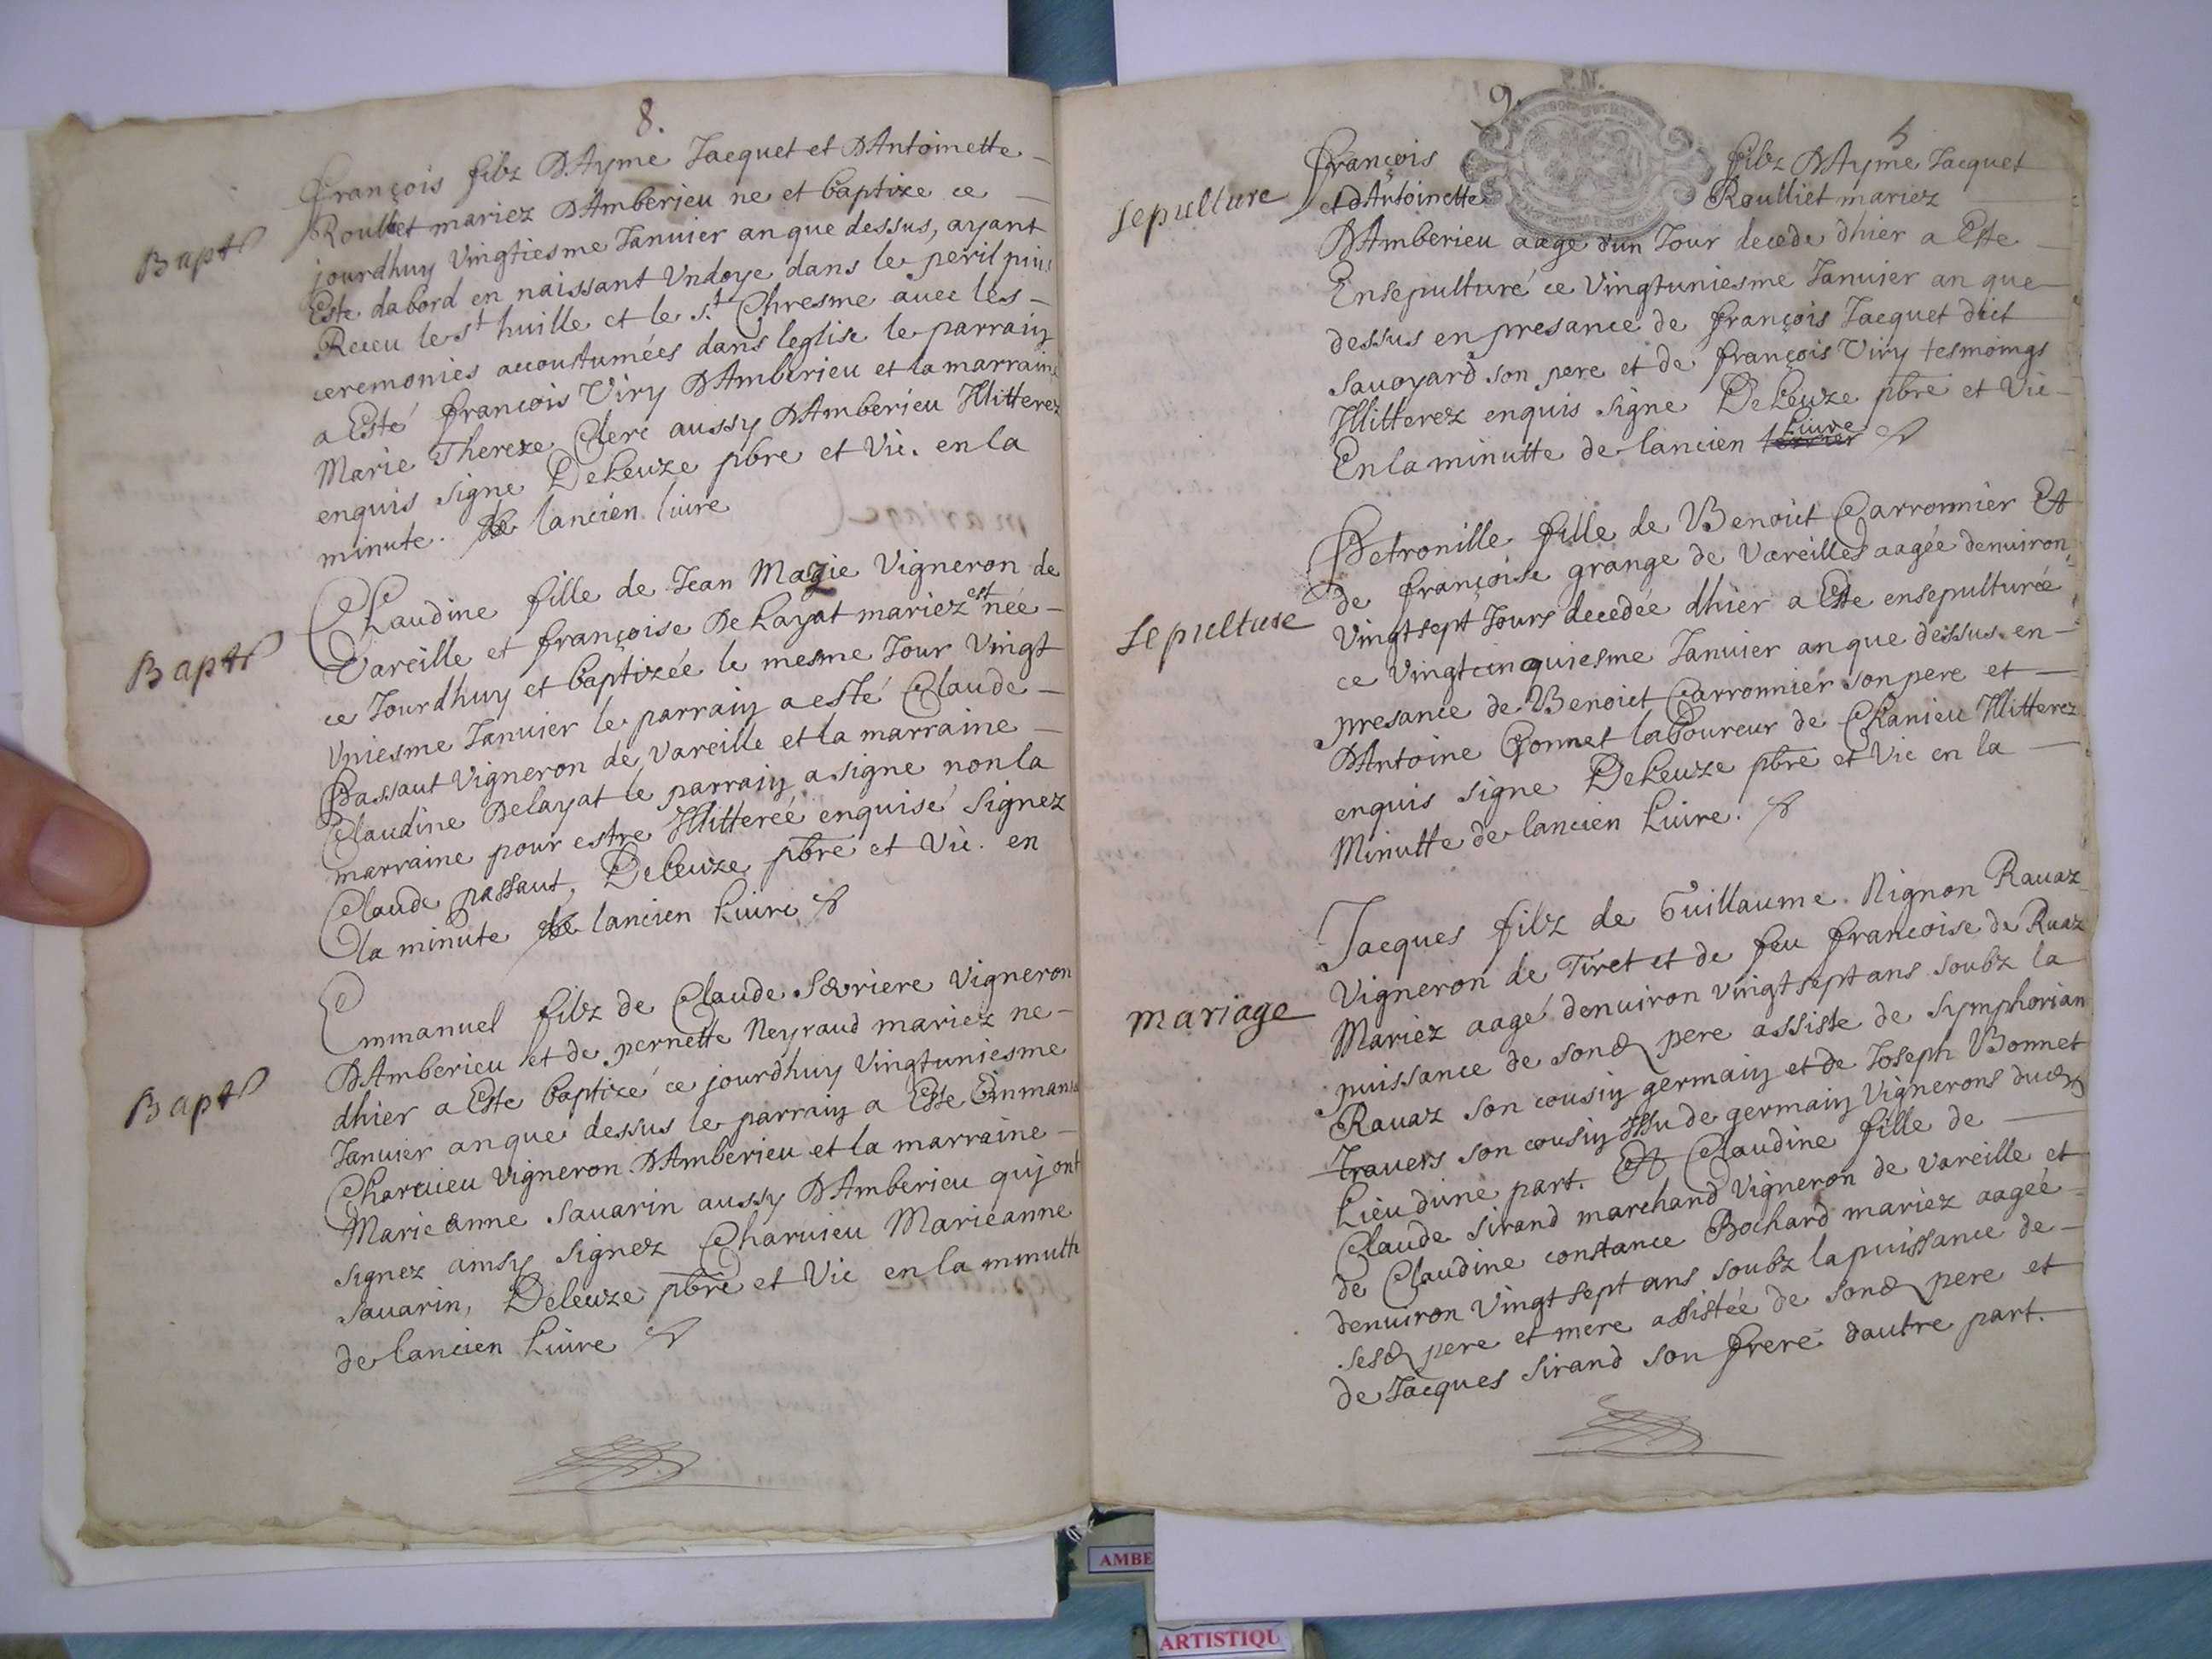 8.
François filz DAyme Jacquet et DAntoinette
Bapt
Roulliet mariez DAmberieu ne et baptize ce
jourdhuy Vingtiesme Januier an que dessus, ayant
Este dabord en naissant Undoye dans le peril puis
Receu le st huille et le st Chresme auec les
ceremonies accoustumées dans leglise le parrain
a Esté françois Viry DAmberieu et la marraine
Marie Thereze Clerc aussy DAmberieu Illitterez
enquis signe DeLeuze pbre et Vic. en la
minute de lancien liure
Claudine fille de Jean Mazie Vigneron de
Bapt
Vareille et françoise DeLayat mariez est née
ce Jourdhuy et baptizée le mesme Jour Vingt
Uniesme Januier le parrain a esté Claude
Passaut Vigneron de Vareille et la marraine
Claudine Delayat le parrain a signe non la
marraine pour estre Illitterée enquise Signez
Claude passaut, Deleuze pbre et Vic. en
la minute de lancien Liure
Emmanuel filz de Claude Seuriere Vigneron
DAmberieu et de pernette Neyraud mariez ne
Bapt
dhier a Este baptizé ce jourdhuy Vingtuniesme
Januier an que dessus le parrain a Este Emmanuel
Charuieu Vigneron DAmberieu et la marraine
Marieanne Sauarin aussy DAmberieu quj ont
signez ainsy signez Charuieu Marieanne
Sauarin, Deleuze pbre et Vic en la minutte
de lancien Liure
9.
5
François filz DAyme Jacquet
sepulture
et dAntoinette Roulliet mariez
DAmberieu aage dun Jour decede dhier a Este
Ensepulturé ce Vingtuniesme Januier an que
dessus en presance de françois Jacquet dict
Sauoyard son pere et de françois Viry tesmoings
Illitterez enquis signe DeLeuze pbre et Vic
En la minutte de lancien terrier Liure
Petronille fille de Benoict Carronnier Et
de françoise grange de Vareilles aagée denuiron
sepulture
Vingt sept Jours decedée dhier a Este ensepulturée
ce Vingtcinquiesme Januier an que dessus en
presance de Benoict Carronnier son pere et
DAntoine Bonnet laboureur de Chanieu Illitterez
enquis signe DeLeuze pbre et Vic en la
Minutte de lancien Liure.
Jacques filz de Guillaume Nignon Rauaz
Vigneron de Tiret et de feu francoise de Ruaz
mariage
Mariez aagé denuiron vingt sept ans soubz la
puissance de sond pere assiste de Symphorian
Rauaz son cousin germain et de Joseph Bonnet
Trauers son cousin Issu de germain Vignerons dud
Lieu dune part. Et Claudine fille de
Claude Sirand marchand Vigneron de Vareille et
de Claudine constance Bochard mariez aagée
denuiron Vingt sept ans soubz la puissance de
sesd pere et mere assistée de sond pere et
de Jacques Sirand son frere dautre part.
AMBE
ARTISTIQU